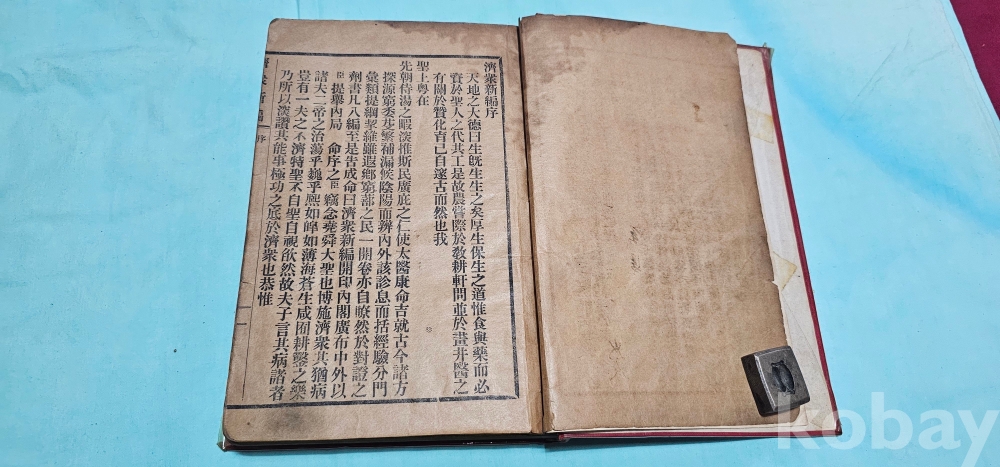 濟衆新編序
天地之大德曰生旣生生之矣厚生保生之道惟食與藥而必
資於聖人之代其工是故農嘗際於敎耕軒問並於畫井醫之
有關於贊化育已自邃古而然也我
聖上粤在
先朝侍湯之暇深推斯民廣庇之仁使太醫康命吉就古今諸方
探源窮委芟繁補漏候陰陽而辨內外該診息而括經驗分門
彙類提綱挈維雖遐鄕窮蔀之民一開卷亦自瞭然於對證之
劑書凡八編至是告成命曰濟衆新編開印內閣廣布中外以
臣提擧內局 命序之臣竊念堯舜大聖也博施濟衆其猶病
諸夫二帝之治蕩乎巍乎熙如皥如薄海蒼生咸囿耕鑿之樂
豈有一夫之不濟特聖不自聖自視欿然故夫子言其病諸者
乃所以深讚其能事極功之底於濟衆也恭惟
濟衆新編 序
一
kobay